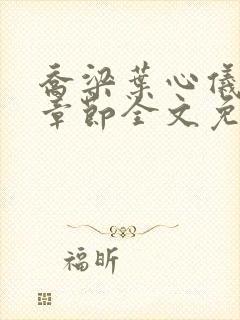 乔梁叶心仪
章节全文免
福昕